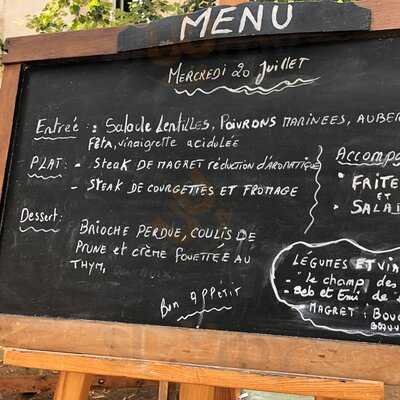 MENU
MERCREDI 20 JUILLET
Entrée : Salade Lentilles, POIVRONS MARINEES, AUBER
FETA, vinaigrette acidulée
PLAT : - Steak DE MAGRET réduction d'AROMATIQUE
- STEAK DE COURGETTES ET FROMAGE
Accomp
FRITE
ET
SALA
Dessert :
BRIOCHE PERDUE, COULIS DE
PRUNE et crème FOUETTÉE AU
THYM,
BON APPETIT
LÉGUMES ET VIA
- "le champ des
- Seb et Emi de
- MAGRET : BOU